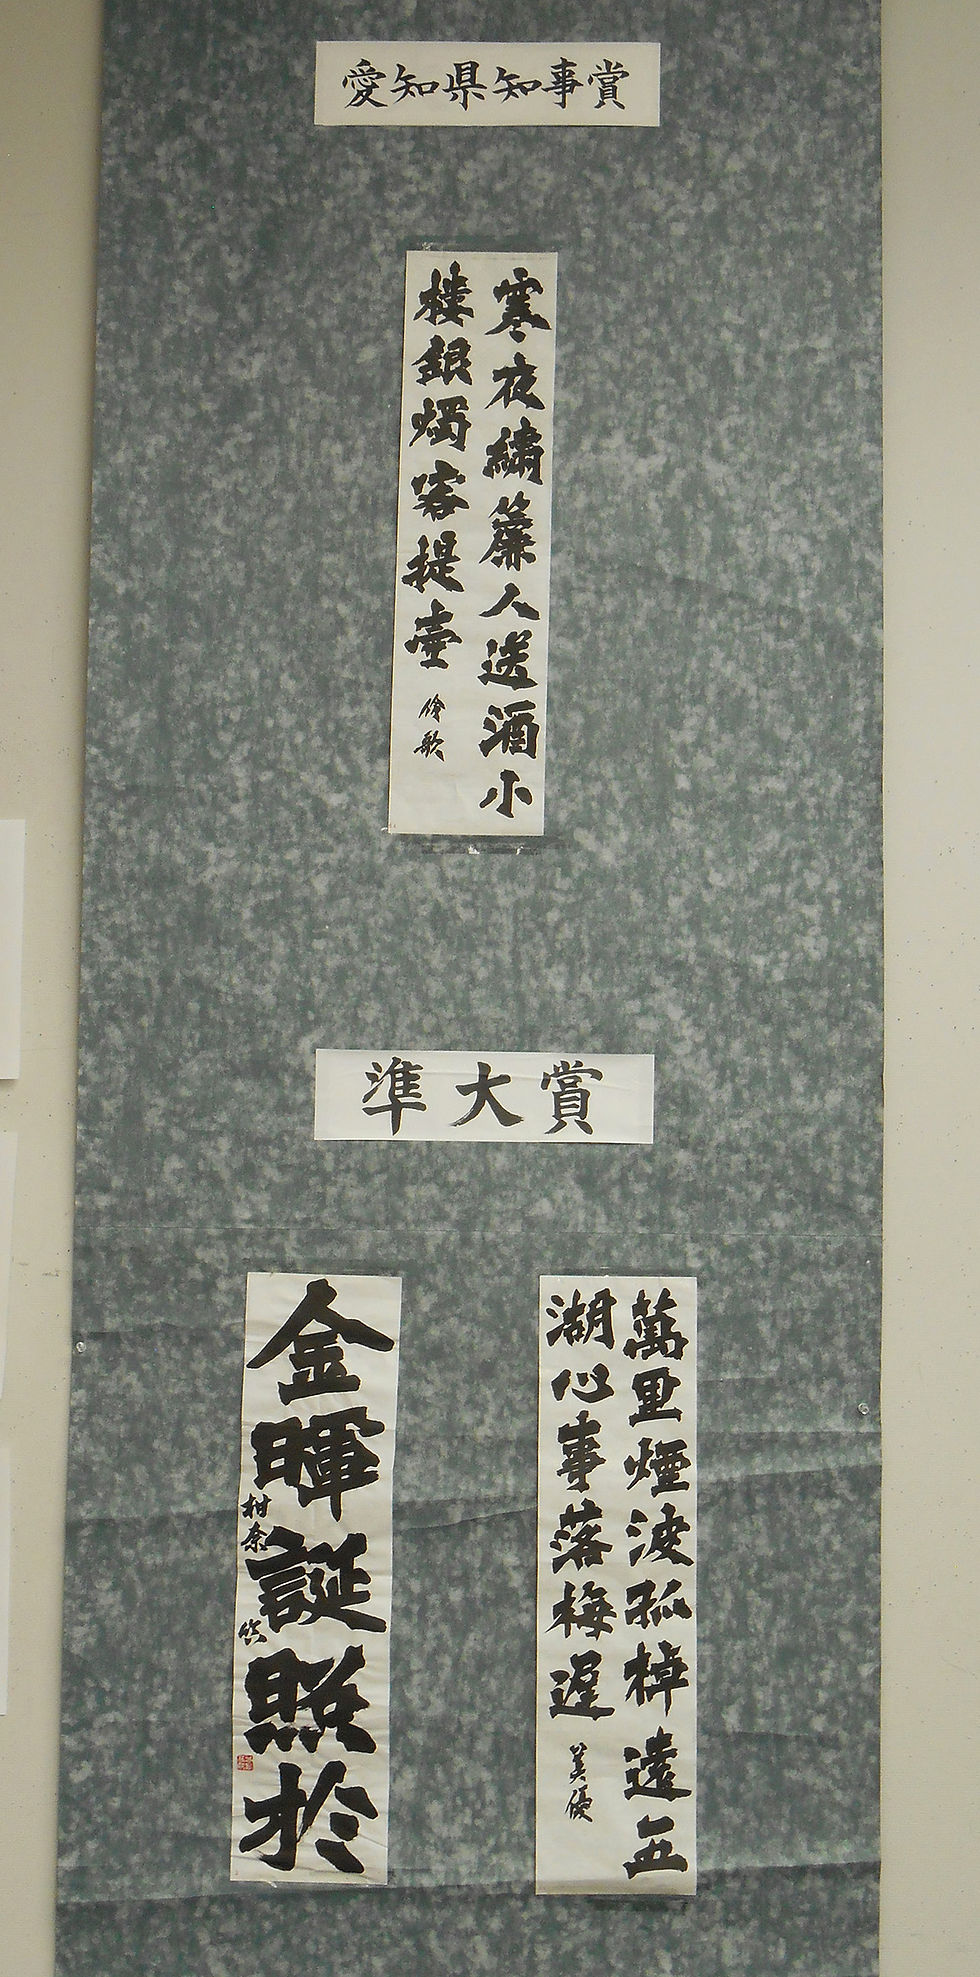 愛知県知事賞
寒夜繡簾人送酒小
楼銀燭客提壷
倫歌
準大賞
萬里煙波孤棹遠五
湖心事落梅遅
美優
金暉誕照於
柑奈